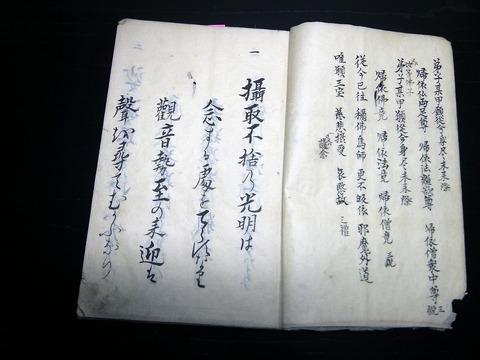 弟子某甲願從今身尽未来際
帰依仏両足尊 帰依法離欲尊 帰依僧衆中尊 三
弟子某甲願從今身尽未来際
帰依佛竟 帰依法竟 帰依僧竟 三
從今已往 稱佛為師 更不皈依 邪魔外道
唯願三宝 慈悲摂受 哀愍故 三禮
護念
一
攝取不捨の光明は
念する處をてらすなり
觀音勢至の来迎は
聲を尋てむかふなり